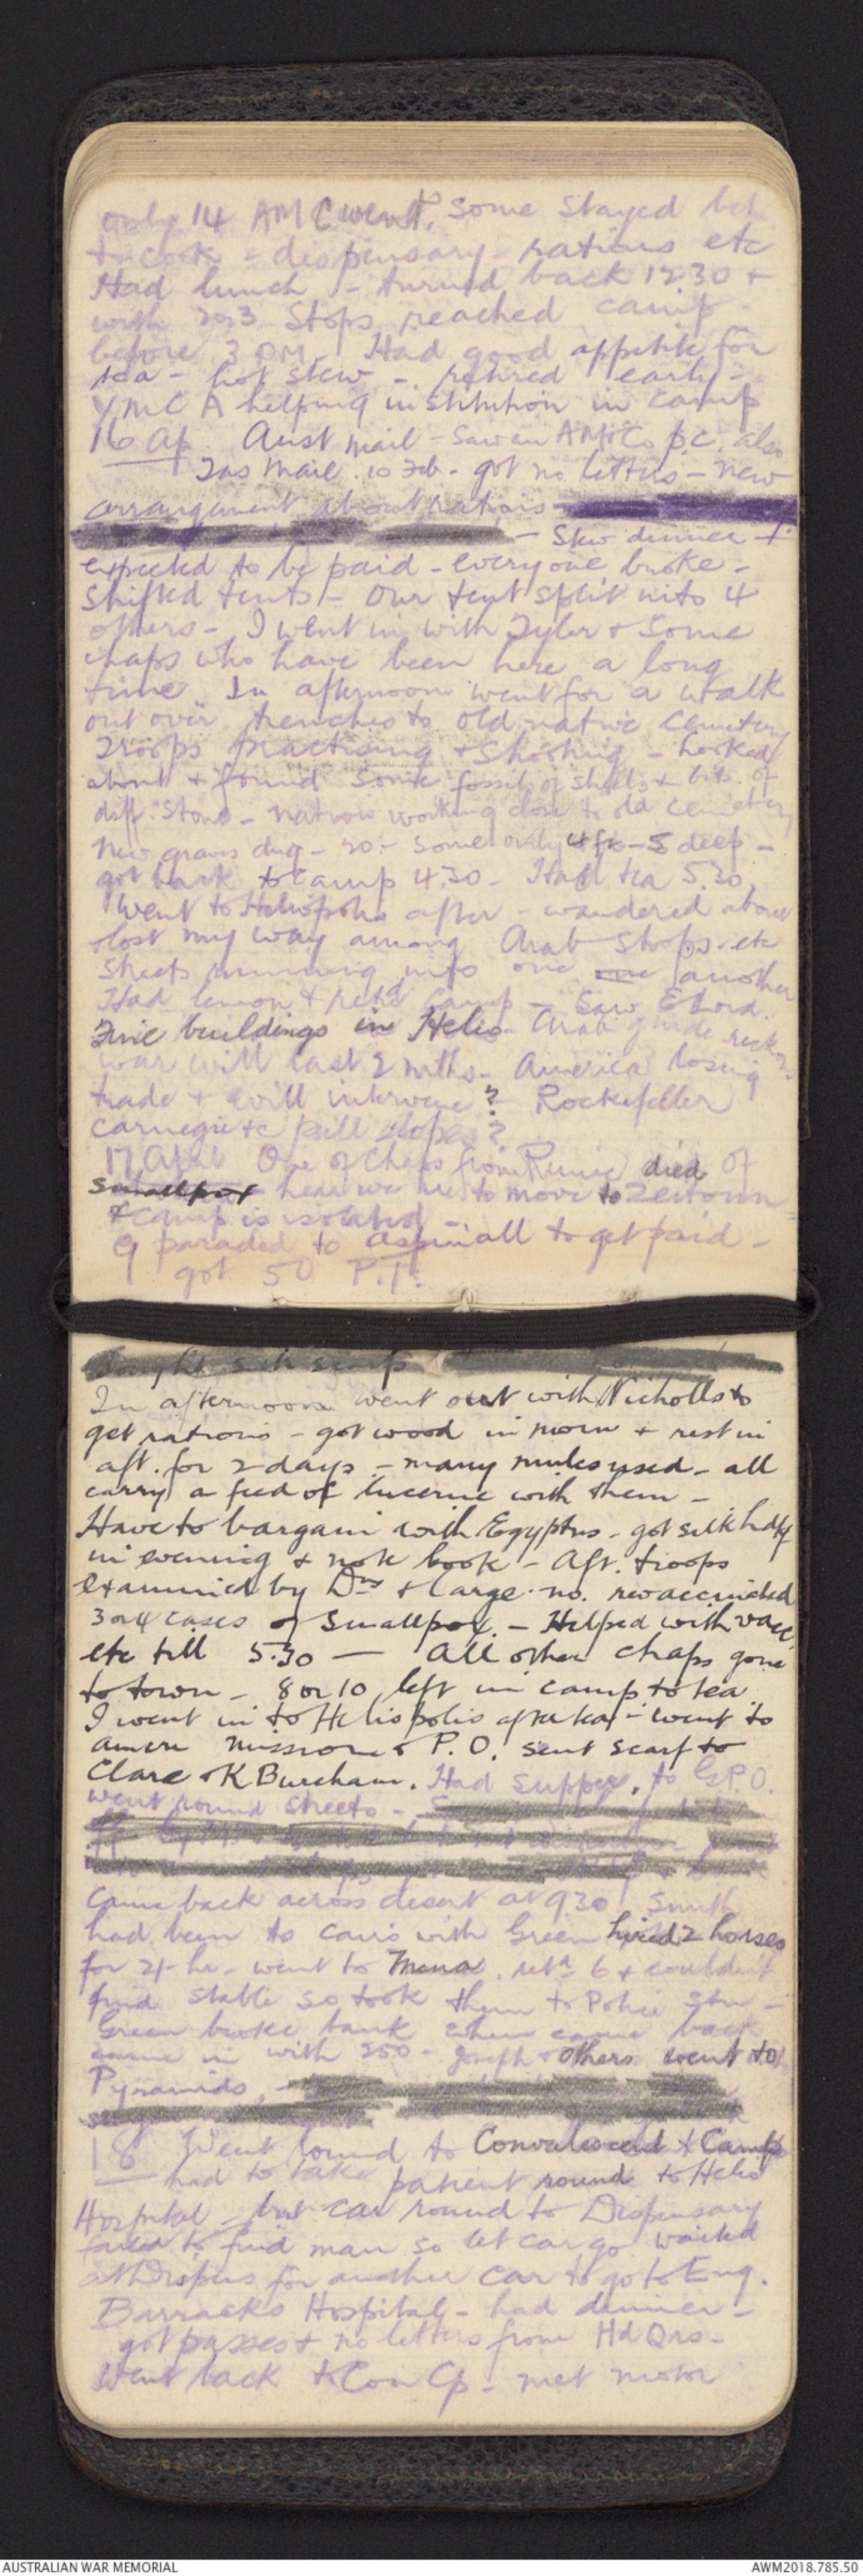 only 14 AMC went, some stayed beh
to cook - dispensary - rations etc
Had lunch - turned back 12.30 +
with 2 or 3 stops reached camp
before 3 PM. Had good appetite for
tea - hot stew - retired early -
YMCA helping institution in camp
16 Ap. Aust mail - saw an AM&Co p.c. also
Tas Mail 10 Feb - got no letters - new
arrangement about rations
- Stew dinner +
expected to be paid - everyone broke -
Shifted tents - Our tent split into 4
others - I went in with Tyler + some
chaps who have been here a long
time In afternoon went for a walk
out over trenches to old native cemetery
Troops practising + shooting - hooked
about + found some fossils of shells + bits of
diff. stone - natives working close to old cemetery
New graves dug - 20 - some only 4 ft - 5 deep -
got back to camp 4.30 - Had tea 5.30
Went to Heliopolis after - wandered about
+ lost my way among Arab shops etc
Streets running into one one another
Had lemon + retd camp - Saw E Lord.
Fine buildings in Helio - Arab guide reck
war will last 2 mths - America losing
trade + will intervene ? Rockefeller
Carnegie etc pull ropes ?
17 April One of chaps from Runic died of
smallpox hear we are to move to Zeitoun
+ camp is isolated -
9 paraded to Aspinall to get paid -
got 50 P.T.
Bought silk scarf
In afternoon went out with Nicholls to
get rations - got wood in morn + rest in
aft. for 2 days - many mules used - all
carry a feed of lucerne with them -
Have to bargain with Egyptns - got silk hdkf
in evening + note book - Aft. troops
examined by Drs + large no. revaccinated
3 or 4 cases of smallpox. - Helped with vacc
etc till 5.30 - All other chaps gone
to town - 8 or 10 left in camp to tea
I went in to Heliopolis after tea - went to
Amern mission & P.O. sent scarf to
Clare & K Burcham. Had supper, to G.P.O.
went round streets -
Came back across desert at 9.30 Smith
had been to Cairo with Green hired 2 horses
for 2/- hr - went to Mena, retd 6 + couldnt
find stable so took them to Police stn -
Green broke tank when came back
came in with 250 - Joseph + others went to
Pyramids, -
18 Went round to Convalescent + Camp
- had to take patient round to Helio
Hospital - but car round to Dispensary
failed to find man so let car go waited
at Dispens for another car to go to Eng.
Barracks Hospital - had dinner -
got passes + no letters from Hd Qrs -
Went back to Con Cp - met motor
AUSTRALIAN WAR MEMORIAL
AWM2018.785.50